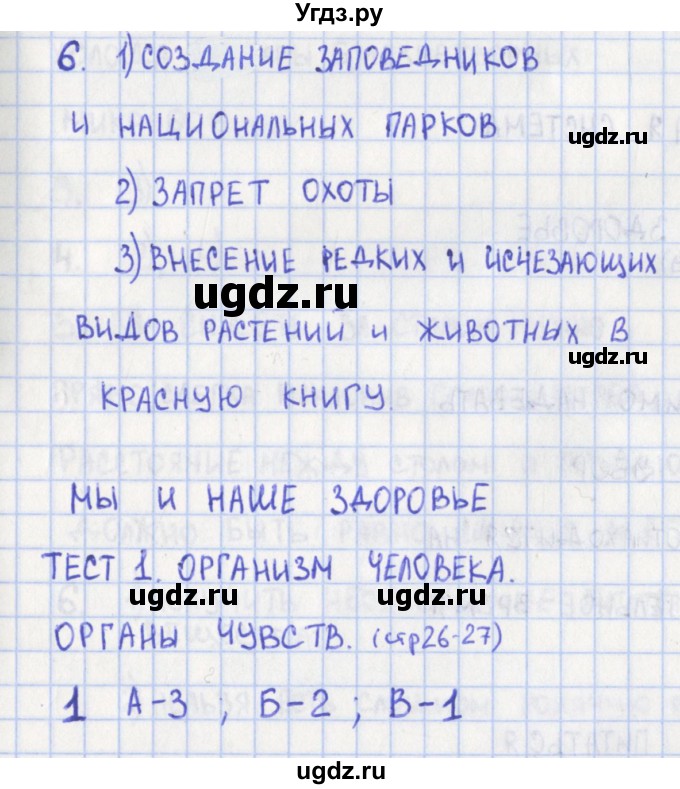 Угдз.ру
6. 1) СОЗДАНИЕ ЗАПОВЕДНИКОВ
И НАЦИОНАЛЬНЫХ ПАРКОВ
ugdz.ru
2) ЗАПРЕТ ОХОТЫ
3) ВНЕСЕНИЕ РЕДКИХ И ИСЧЕЗАЮЩИХ
ugdz.ru
ВИДОВ РАСТЕНИЙ И ЖИВОТНЫХ В
ugdz.ru
КРАСНУЮ КНИГУ.
МЫ И НАШЕ ЗДОРОВЬЕ
ugdz.ru
ТЕСТ 1. ОРГАНИЗМ ЧЕЛОВЕКА.
ugdz.ru ugdz.ru
ОРГАНЫ ЧУВСТВ. (стр 26-27)
1 А-3; Б-2; В-1
ugdz.ru